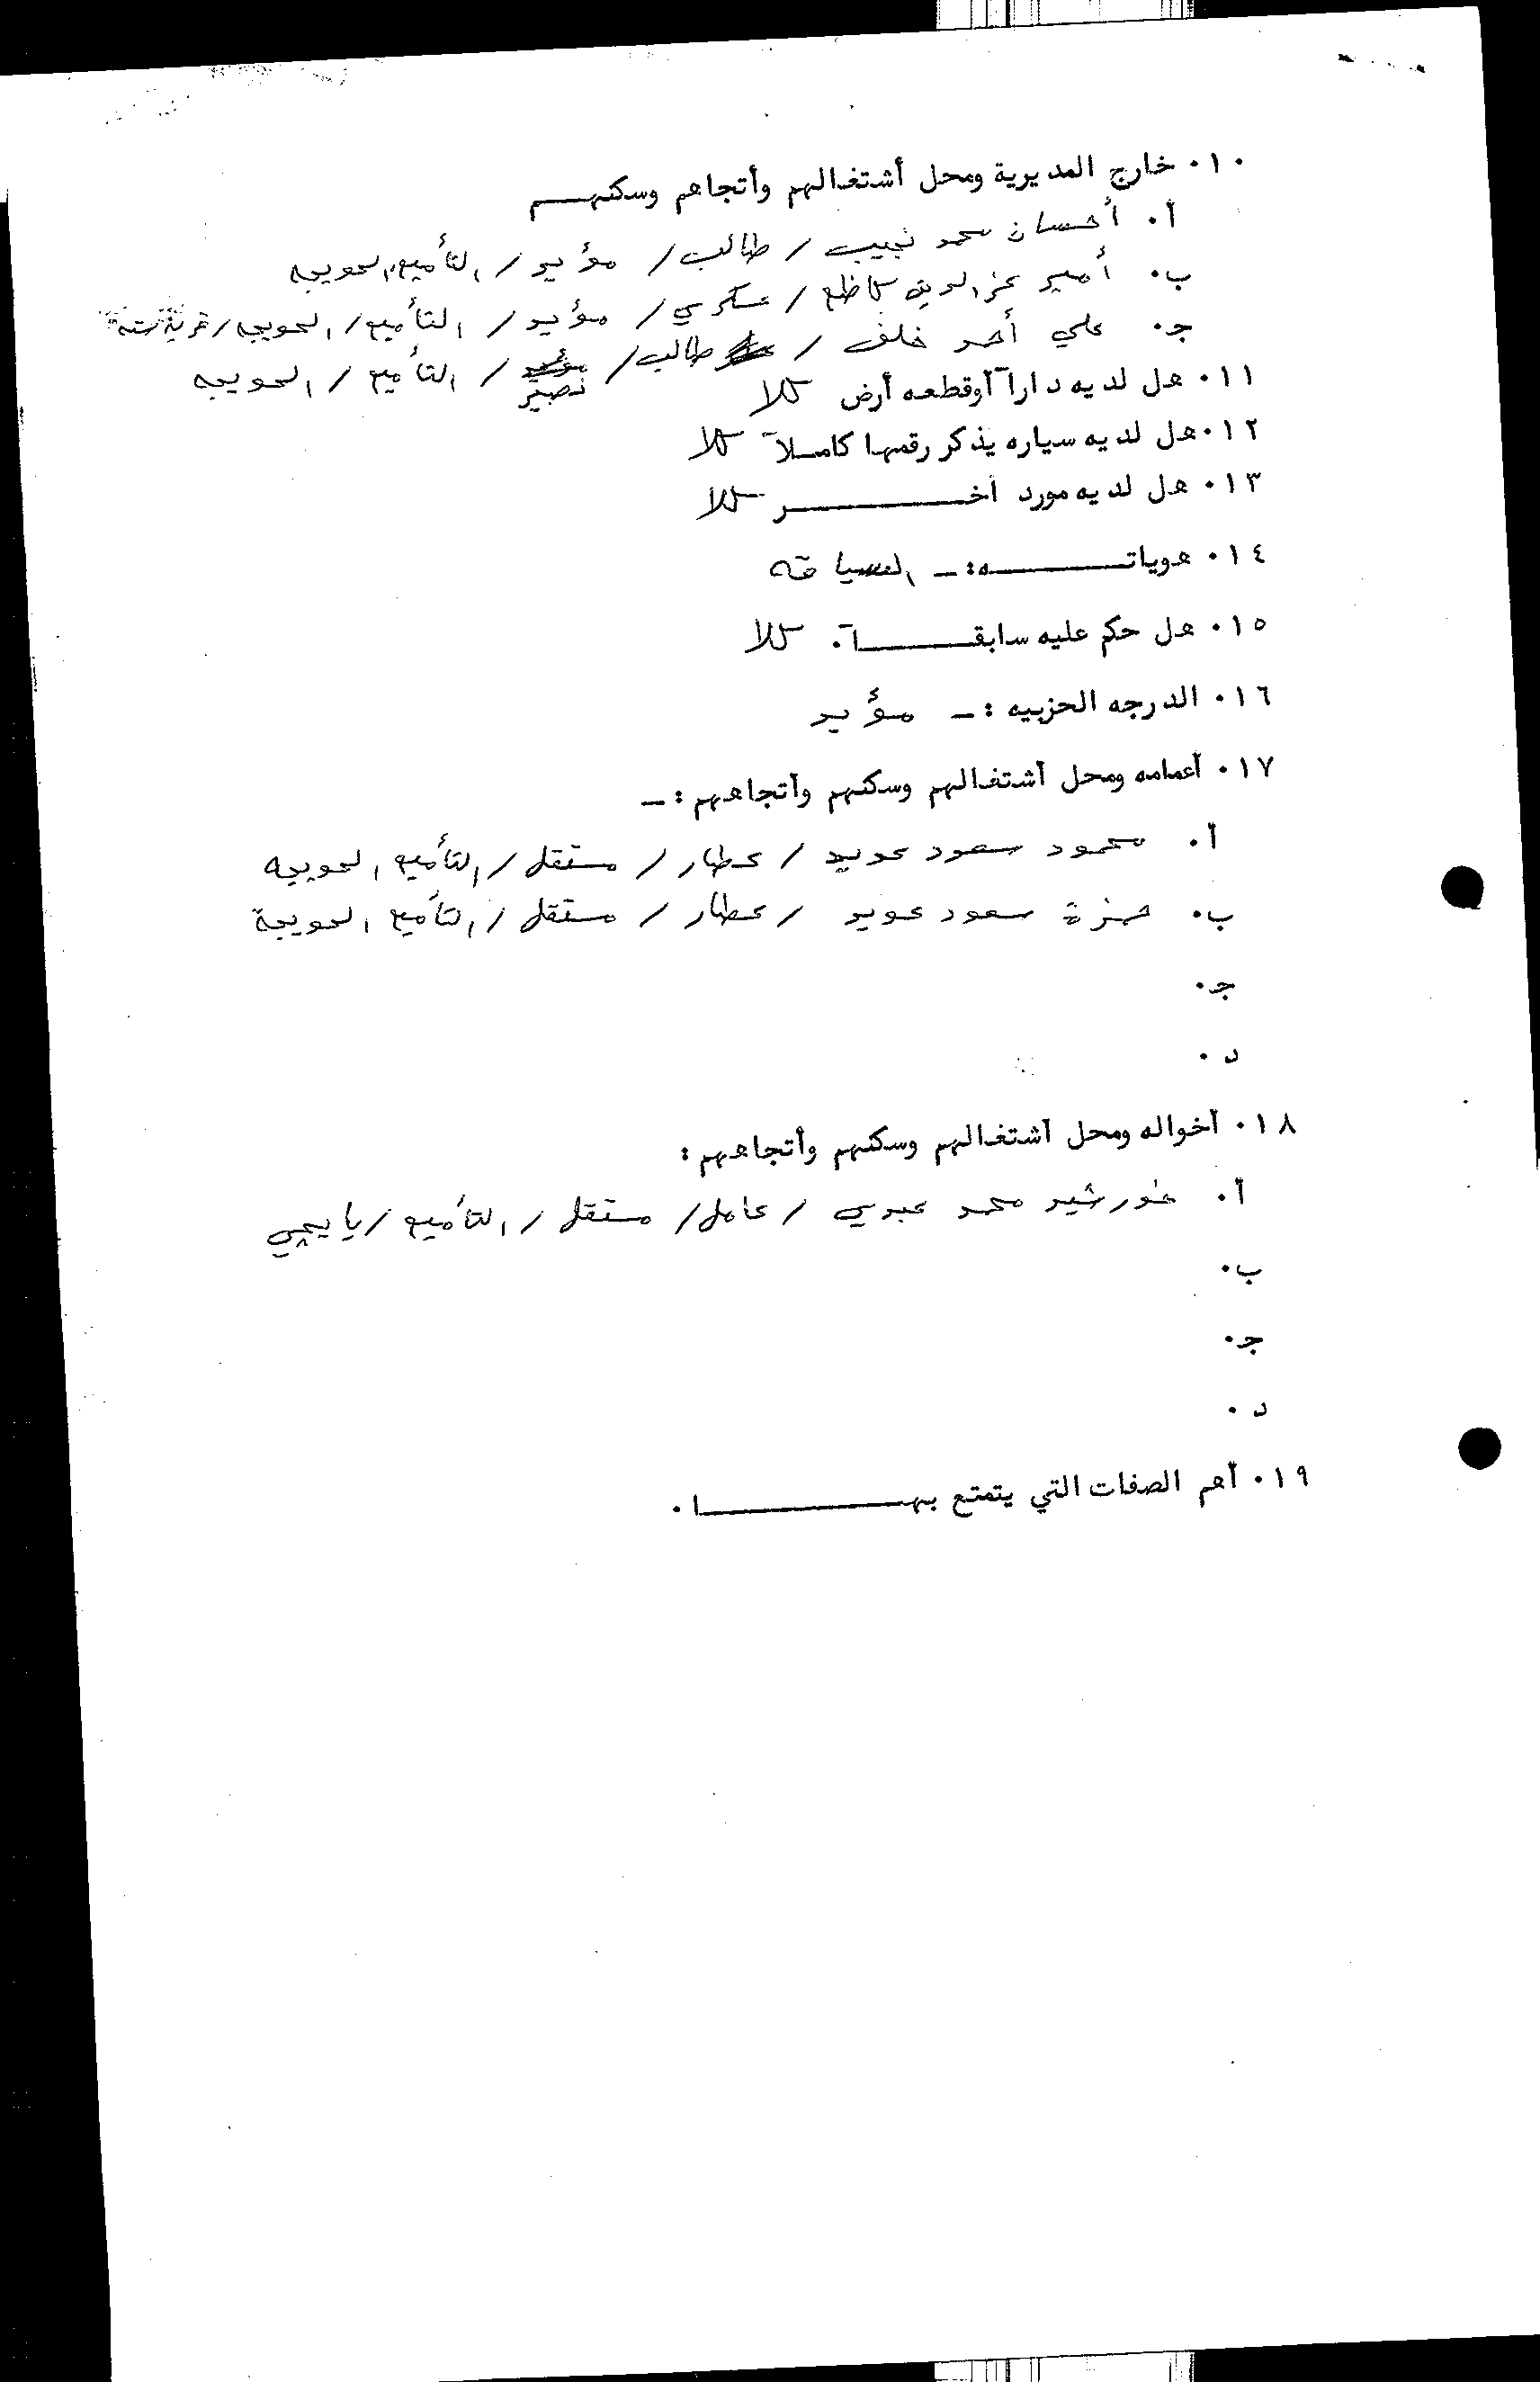 ١٠٠ خارج المديرية ومحل أشتغالهم وأتجاهم وسكنهم
أ٠ أحسان محمد نجيب / طالب / مؤيد / التأميم الحويجه
ب٠ أمير عز الدين كاظم / عسكري / مؤيد / التأميم / الحويجه / قرية
ج٠ علي أحمد خلف / طالب / نصير / التأميم / الحويجه
١١٠ هل لديه داراً أوقطعه أرض كلا
١٢٠ هل لديه سياره يذكر رقمها كاملاً كلا
١٣٠ هل لديه مورد أخر كلا
١٤٠ هوياته :ـ السياقه
١٥٠ هل حكم عليه سابقاً ٠ كلا
١٦٠ الدرجه الحزبيه :ـ مؤيد
١٧٠ أعمامه ومحل أشتغالهم وسكنهم وأتجاههم :ـ
أ٠ محمود سعود عويد / عطار / مستقل / التأميم الحويجه
ب٠ حمزة سعود عويد / عطار / مستقل / التأميم الحويجة
ج٠
د٠
١٨٠ أخواله ومحل أشتغالهم وسكنهم وأتجاههم :
أ٠ خورشيد محمد عبدي / عامل / مستقل / التأميم / يايجي
ب٠
ج٠
د٠
١٩٠ أهم الصفات التي يتمتع بها ٠